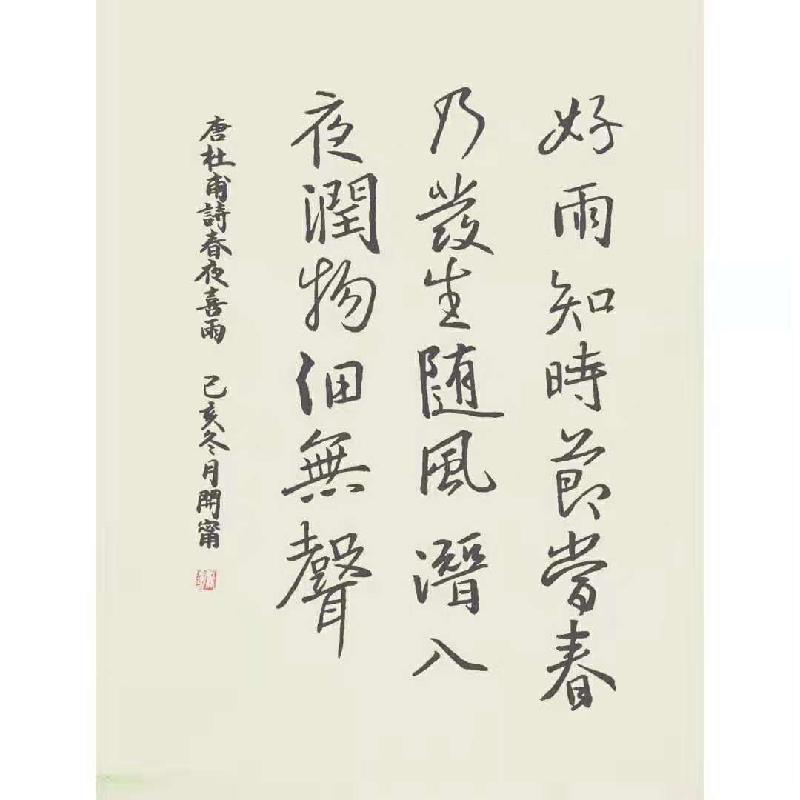 好雨知時節當春
乃發生随風潛入
夜潤物細無聲
唐杜甫詩春夜喜雨 己亥冬月開甯